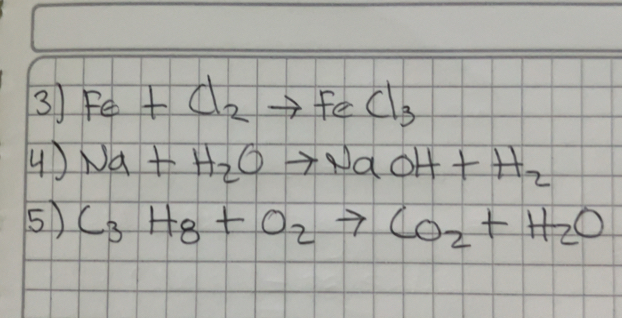 3) Fe + Cl₂ → FeCl₃
4) Na + H₂O → NaOH + H₂
5) C₃ H₈ + O₂ → CO₂ + H₂O